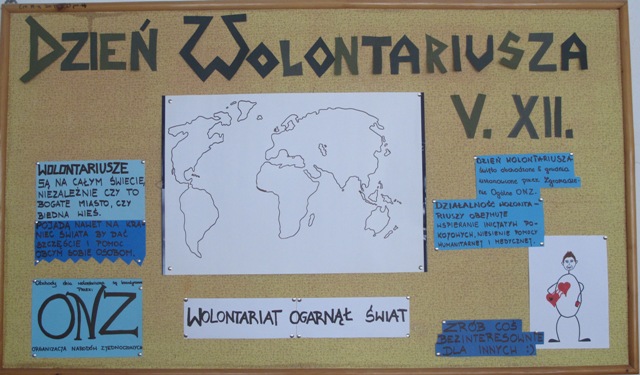 DZIEŃ WOLONTARIUSZA
V. XII.
WOLONTARIUSZE
SĄ NA CAŁYM ŚWIECIE,
NIEZALEŻNIE CZY TO
BOGATE MIASTO, CZY
BIEDNA WIEŚ.
POJADĄ NAWET NA KRA-
NIEC ŚWIATA BY DAĆ
SZCZĘŚCIE I POMOC
OBCYM SOBIE OSOBOM.
DZIEŃ WOLONTARIUSZA
święto obchodzone 5 grudnia
ustanowione przez Zgromadze-
nie Ogólne ONZ.
DZIAŁALNOŚĆ WOLONTA-
RIUSZY OBEJMUJE
WSPIERANIE INICJATYW PO-
KOJOWYCH, NIESIENIE POMOCY
HUMANITARNEJ I MEDYCZNEJ.
Obchody dnia wolontariusza są
przez:
ONZ
ORGANIZACJA NARODÓW ZJEDNOCZONYCH
WOLONTARIAT OGARNĄŁ ŚWIAT
ZRÓB COŚ
BEZINTERESOWNIE
DLA INNYCH :)